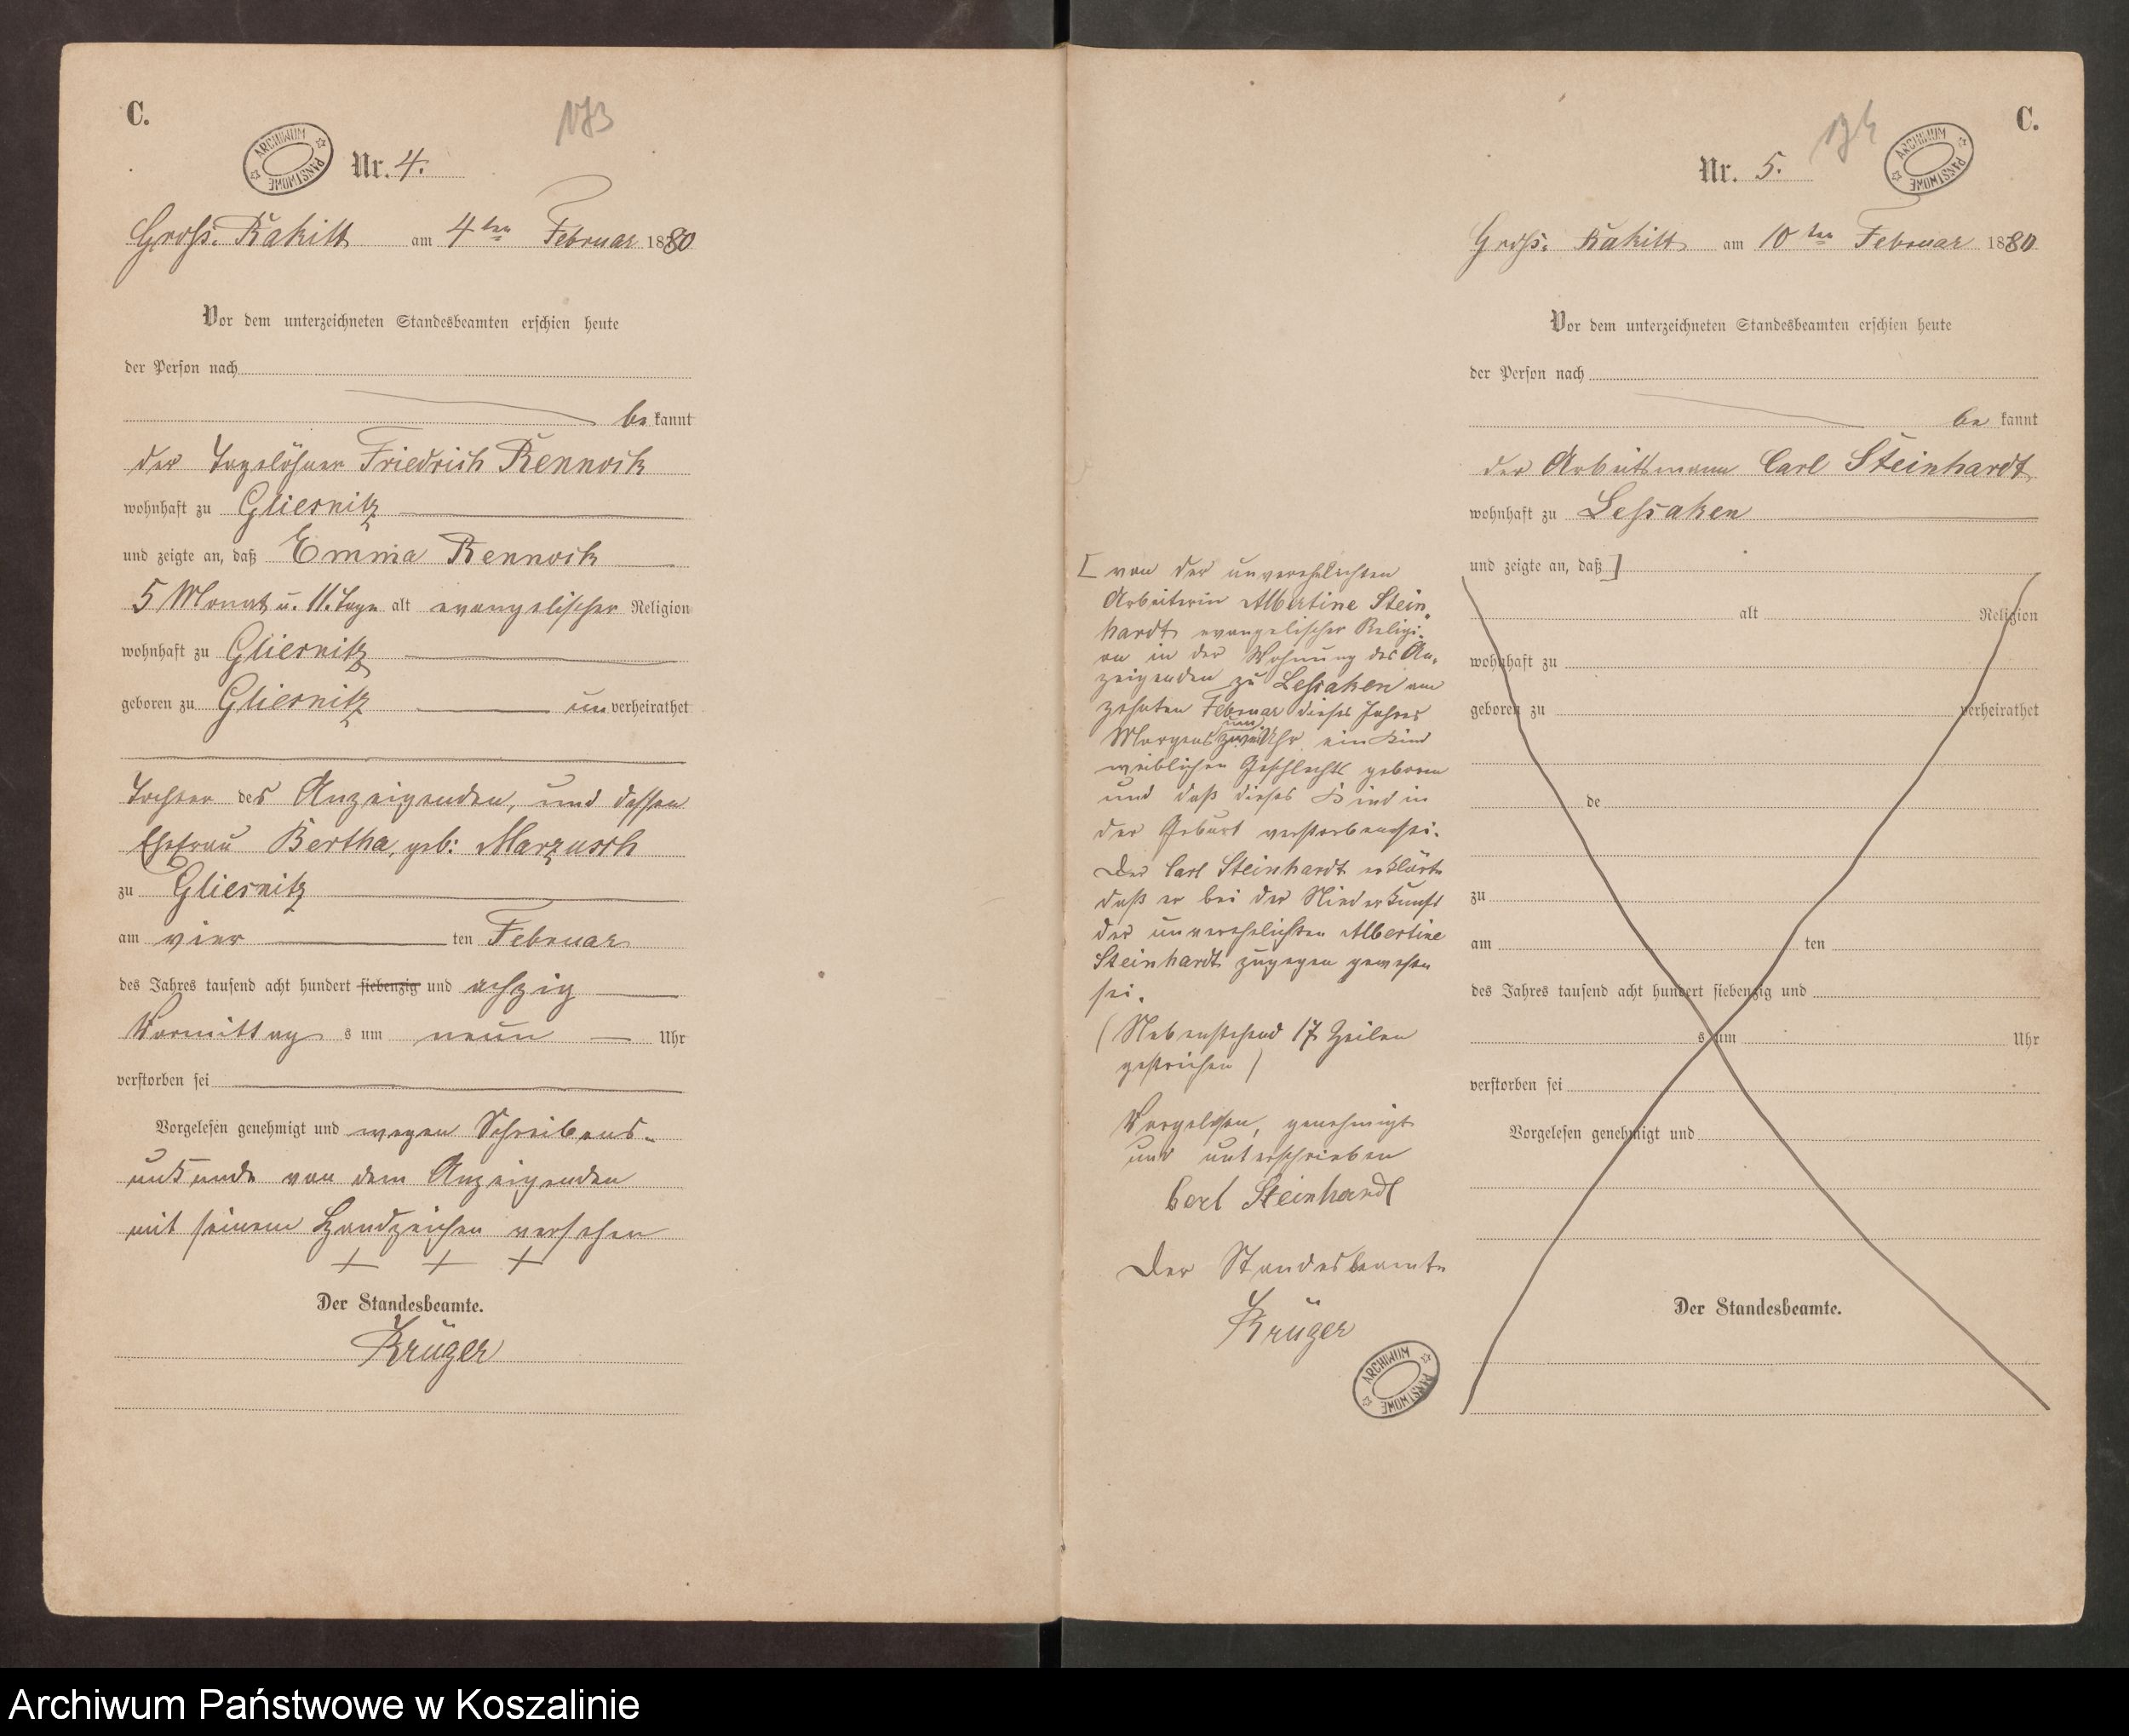 C.
173
ARCHIWUM PAŃSTWOWE
Nr. 4.
Groß. Rakitt am 4ten Februar 1880
Vor dem unterzeichneten Standesbeamten erschien heute
der Person nach
be kannt
der Tagelöhner Friedrich Rennock
wohnhaft zu Gliesnitz
und zeigte an, daß Emma Rennock
5 Monat u. 11. Tage alt evangelischer Religion
wohnhaft zu Gliesnitz
geboren zu Gliesnitz un verheirathet
Tochter des Anzeigenden, und dessen
Ehefrau Bertha, geb: Marzusch
zu Gliesnitz
am vier ten Februar
des Jahres tausend acht hundert siebenzig und achzig
Vormittag s um neun Uhr
verstorben sei
Vorgelesen genehmigt und wegen Schreibens-
unkunde von dem Anzeigenden
mit seinem Handzeichen versehen
+ + +
Der Standesbeamte.
Krüger
C.
ARCHIWUM PAŃSTWOWE
Nr. 5.
Groß. Rakitt am 10ten Februar 1880
Vor dem unterzeichneten Standesbeamten erschien heute
der Person nach
be kannt
der Arbeitsmann Carl Steinhardt
wohnhaft zu Lessaken
und zeigte an, daß ]
alt Religion
wohnhaft zu
geboren zu verheirathet
de
zu
am ten
des Jahres tausend acht hundert siebenzig und
s um Uhr
verstorben sei
Vorgelesen genehmigt und
Der Standesbeamte.
[ von der unverehelichten
Arbeiterin Albertine Stein-
hardt evangelischer Religi-
on in der Wohnung des An-
zeigenden zu Lessaken am
zehnten Februar dieses Jahres
Morgens um zwei Uhr ein Kind
weiblichen Geschlechts geboren
und daß dieses Kind in
der Geburt verstorben sei.
Der Carl Steinhardt erklärte
daß er bei der Niederkunft
der unverehelichten Albertine
Steinhardt zugegen gewesen
sei.
(Nebenstehend 17 Zeilen
gestrichen)
Vorgelesen, genehmigt
und unterschrieben
Carl Steinhardt
Der Standesbeamte
Krüger
ARCHIWUM PAŃSTWOWE
Archiwum Państwowe w Koszalinie